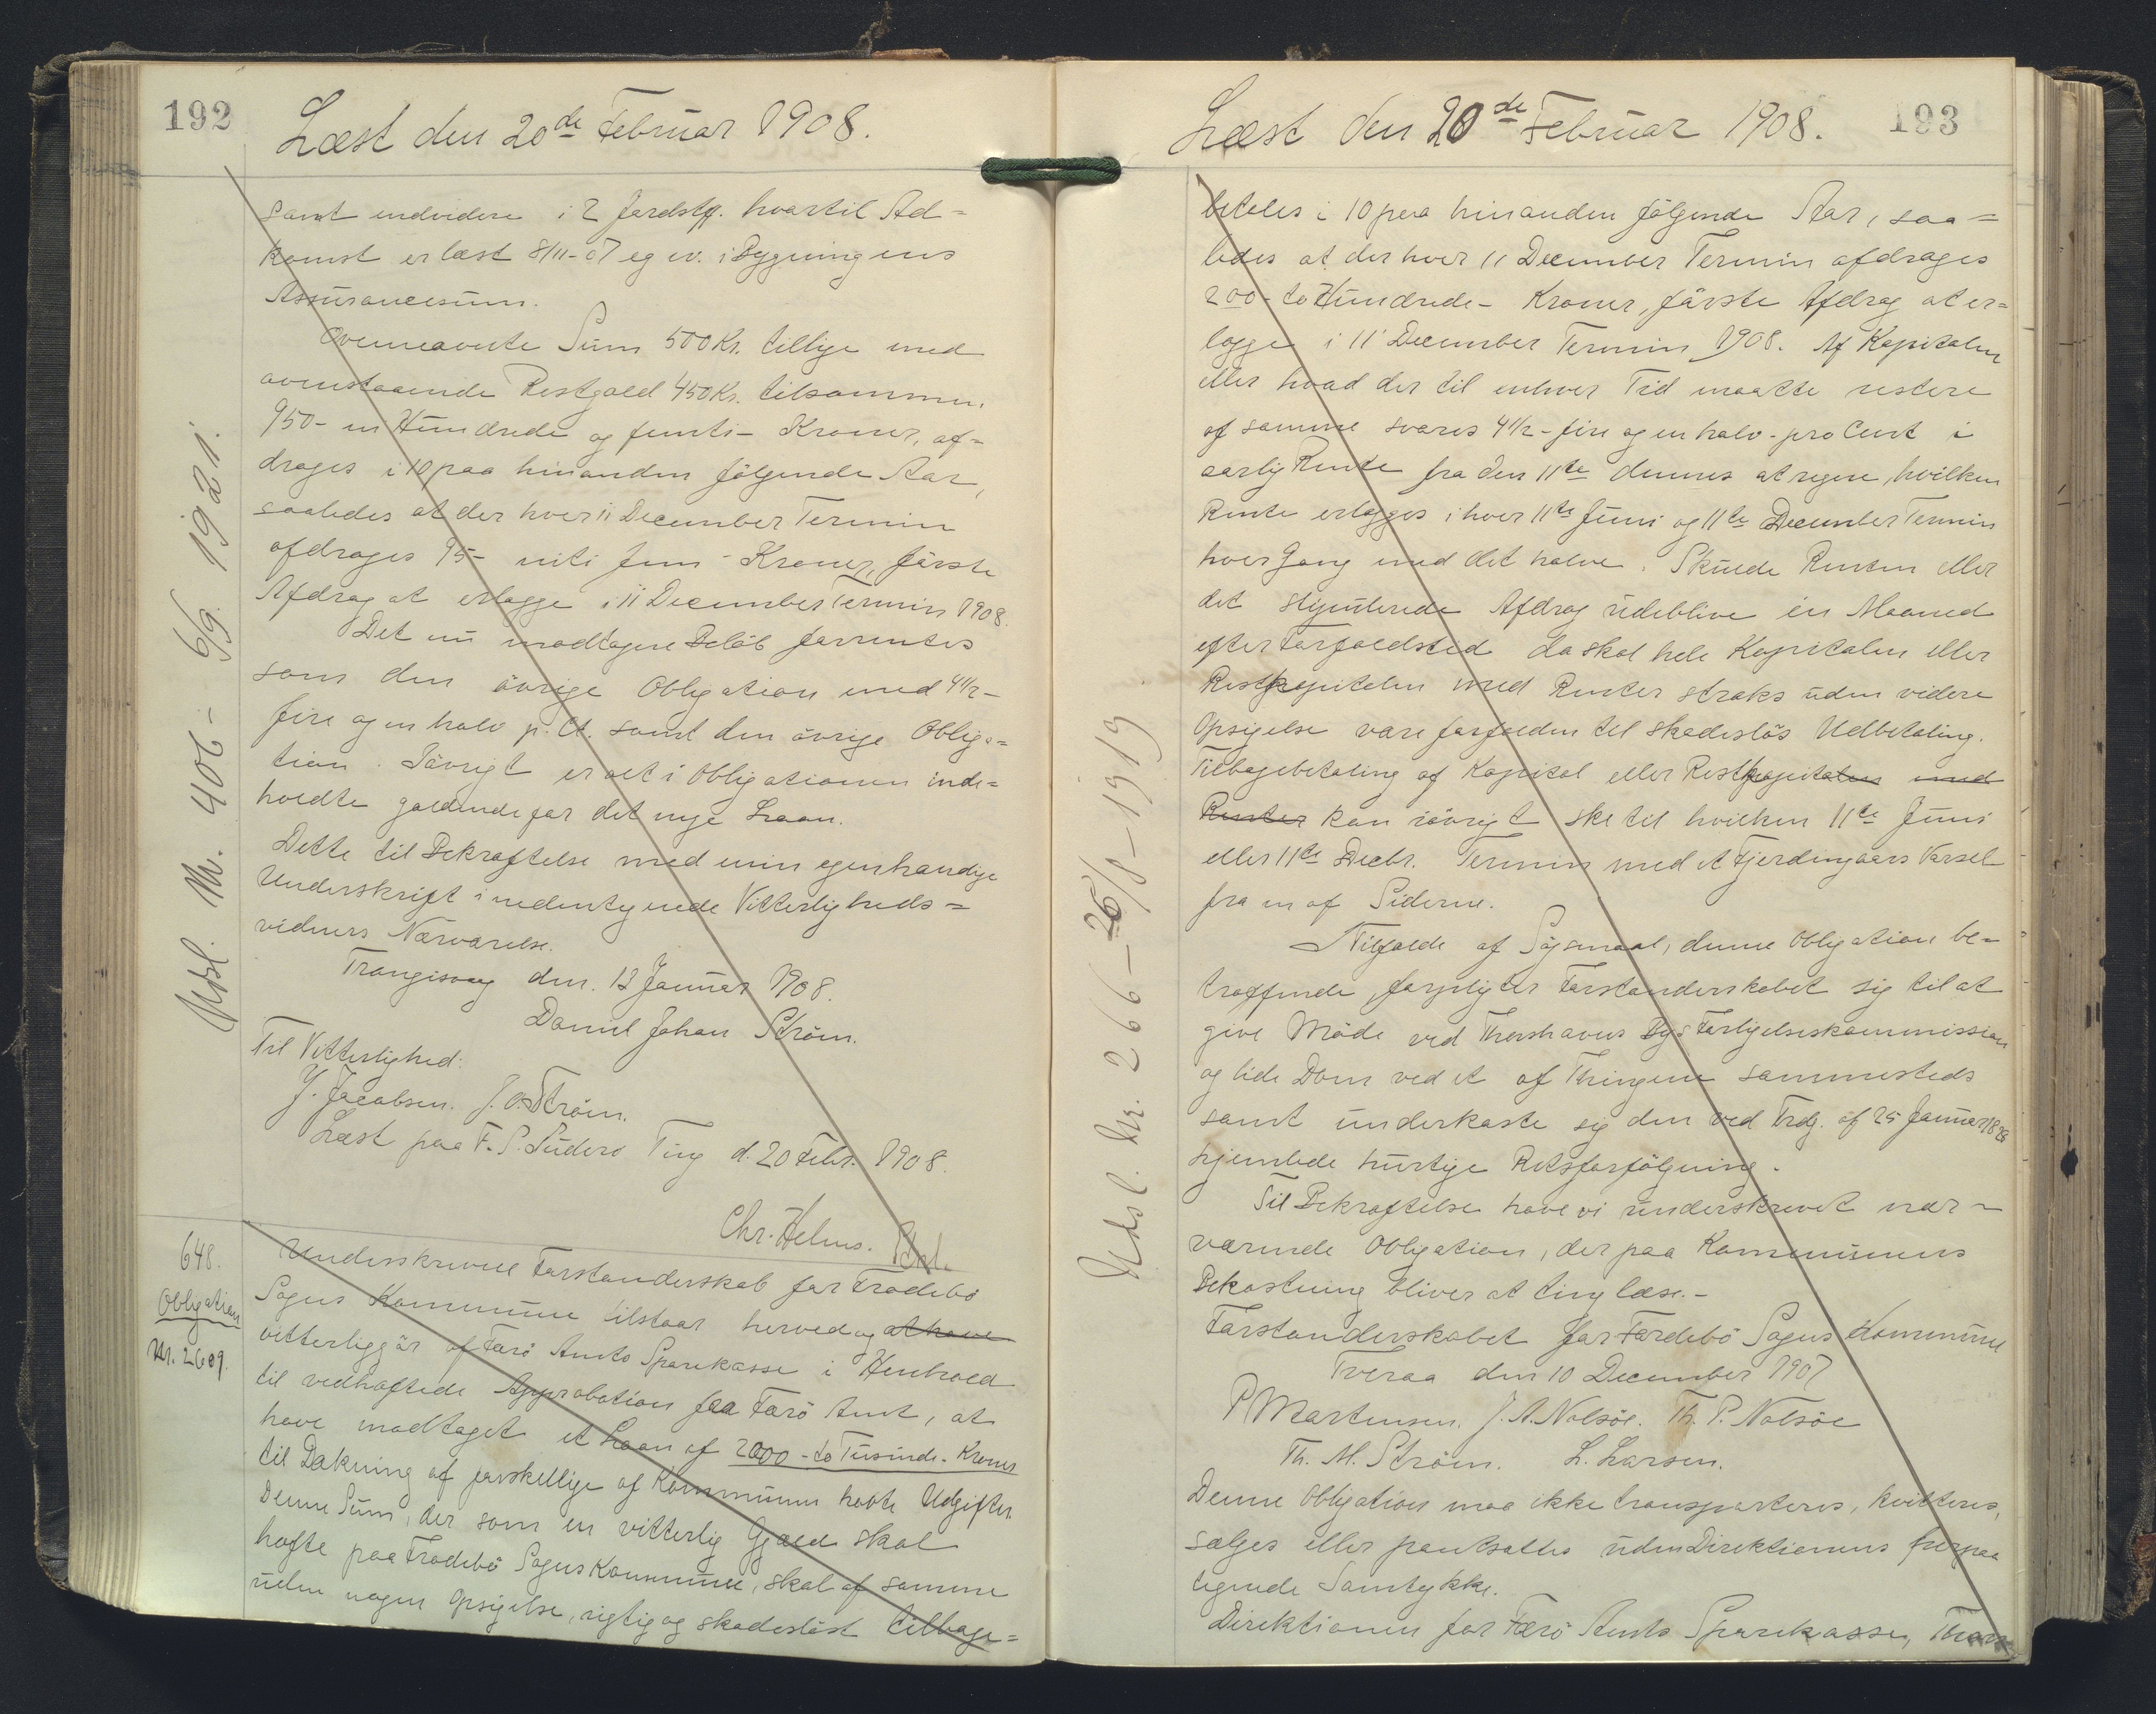 192
Læst den 20de Februar 1908.
samt endvidere i 2 Jordstk. hvortil Ad=
komst er læst 8/11-07 eg ev. i Bygningens
Assurancesum.
Ovennævnte Sum 500 Kr. tillige med
ovenstaaende Restgæld 450 Kr. tilsammen,
950 - ni Hundrede og femti - Kroner, af=
drages i 10 paa hinanden følgende Aar,
saaledes at der hver 11 December Termin
afdrages 95 - niti fem - Kroner, første
Afdrag at erlægge i 11 December Termin 1908.
Det nu modtagne Beløb forrentes
som den øvrige Obligation med 4 1/2 -
fire og en halv p. Ct. samt den øvrige Obliga=
tion. Iøvrigt er alt i Obligationen inde=
holdte gældende for det nye Laan.
Dette til Bekræftelse med min egenhændige
Underskrift i nedentegnede Vitterligheds=
vidners Nærværelse.
Trangisvaag den. 13 Januar 1908.
Daniel Johan Strøm.
Til Vitterlighed:
J. Jacobsen. J. O. Strøm.
Læst paa F. S. Suderø Ting d. 20 Febr. 1908.
Chr. Helms.
Udsl. Nr. 406 - 6/9. 1921.
648.
Obligation
Nr. 2609.
Underskrevne Forstanderskab for Frodebø
Sogns Kommune tilstaar herved og at have
vitterliggør af Færø Amts Sparekasse i Henhold
til vedhæftede Approbation fra Færø Amt, at
have modtaget et Laan af 2000 - to Tusinde - Kroner
til Dækning af forskellige af Kommunen havte Udgifter
Denne Sum, der som en vitterlig Gjæld skal
hæfte paa Frodebø Sogns Kommune, skal af samme
uden nogen Opsigelse, rigtig og skadesløst tilbage=
193
Læst den 20de Februar 1908.
betales i 10 paa hinanden følgende Aar, saa=
ledes at der hver 11 December Termin afdrages
200 - to Hundrede - Kroner, første Afdrag at er=
lægge i 11 December Termin 1908. Af Kapitalen
eller hvad der til enhver Tid maatte restere
af samme svares 4 1/2 - fire og en halv - pro Cent i
aarlig Rente fra den 11te dennes at regne, hvilken
Rente erlægges i hver 11te Juni og 11te December Termin
hver Gang med det halve. Skulde Renten eller
det stipulerede Afdrag udeblive en Maaned
efter Forfaldstid da skal hele Kapitalen eller
Restkapitalen med Renter straks uden videre
Opsigelse være forfalden til skadesløs Udbetaling.
Tilbagebetaling af Kapital eller Restkapitalen med
Renter kan iøvrigt ske til hvilken 11te Juni
eller 11te Decbr. Termin med et Fjerdingaars Varsel
fra en af Siderne.
I Tilfælde af Søgsmaal, denne Obligation be=
træffende, forpligter Forstanderskabet sig til at
give Møde ved Thorshavns Bys Forligelseskommission
og lide Dom ved et af Thingene sammesteds
samt underkaste sig den ved Frdg. af 25 Januar 1828
hjemlede hurtige Retsforfølgning.
Til Bekræftelse have vi underskrevet nær-
værende Obligation, der paa Kommunens
Bekostning bliver at tinglæse. -
Forstanderskabet for Fordebø Sogns Kommune
Tveraa den 10 December 1907
P Mortensen. J. A. Nolsøe. Th. P. Nolsøe
Th. M. Strøm. L. Larsen.
Denne Obligation maa ikke transporteres, kvitteres,
sælges eller pantsættes uden Direktionens herpaa
tegnede Samtykke.
Direktionen for Færø Amts Sparekasse, Thors
Udsl. Nr. 266 - 26/8 - 1919